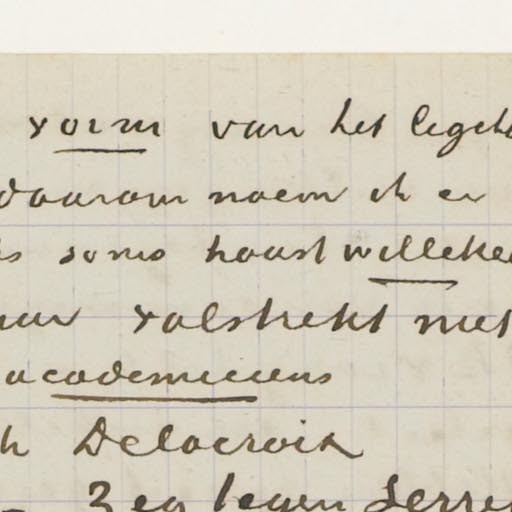 vorm van het
daarom noem ik er
soms haast willekeu
volstrekt niet
academiciens
Delacroix
Zeg tegen Serre